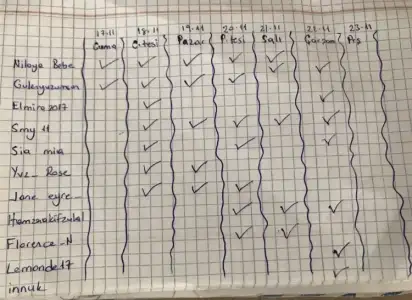 17.11 18.11 19.11 20.11 21.11 22.11 23.11
Cuma C.tesi Pazar P.tesi Salı Çarşam Pş
Niloya Bebe
Gulenyuzumm
Elmire2017
Smy 11
Sia mia
Yvz_Rose
Jane eyre
Hamzaakifzulal
Florence_N
Lemonde17
innuk